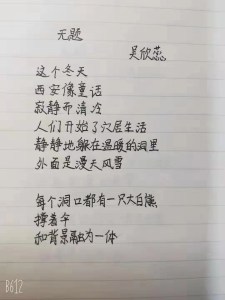 无题
吴欣蕊
这个冬天
西安像童话
寂静而清冷
人们开始了穴居生活
静静地躲在温暖的洞里
外面是漫天风雪
每个洞口都有一只大白熊
撑着伞
和背景融为一体
B612